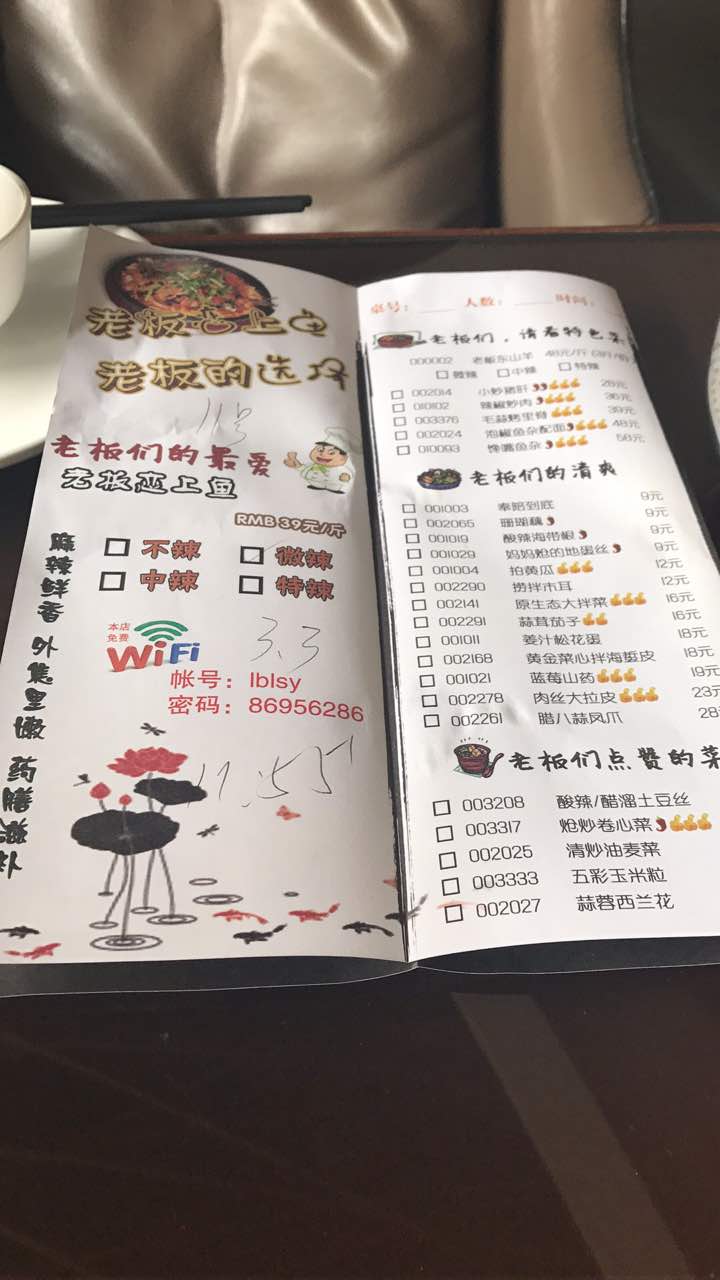 老板的选择
11号
老板们的最爱
老板恋上鱼
RMB 39元/斤
不辣 微辣
中辣 特辣
麻辣鲜香 外焦里嫩 药膳滋补
本店
免费
WiFi
3.3
帐号：lblsy
密码：86956286
桌号： 人数： 时间：
老板们，请看特色菜
000002 老板东山羊 48元/斤
微辣 中辣 特辣
002014 小炒猪肝 28元
010102 辣椒炒肉 36元
003376 毛蒜烤里脊 39元
002024 泡椒鱼杂配面 48元
010093 馋嘴鱼杂 58元
老板们的清爽
001003 奉陪到底 9元
002065 珊瑚藕 9元
001019 酸辣海带根 9元
001029 妈妈粉的地蛋丝 9元
001004 拍黄瓜 12元
002290 捞拌木耳 12元
002141 原生态大拌菜 16元
002291 蒜茸茄子 16元
001011 姜汁松花蛋 18元
002168 黄金菜心拌海蜇皮 18元
001021 蓝莓山药 19元
002278 肉丝大拉皮 23元
002261 腊八蒜凤爪 28
老板们点赞的菜
003208 酸辣/醋溜土豆丝
003317 炝炒卷心菜
002025 清炒油麦菜
003333 五彩玉米粒
002027 蒜蓉西兰花